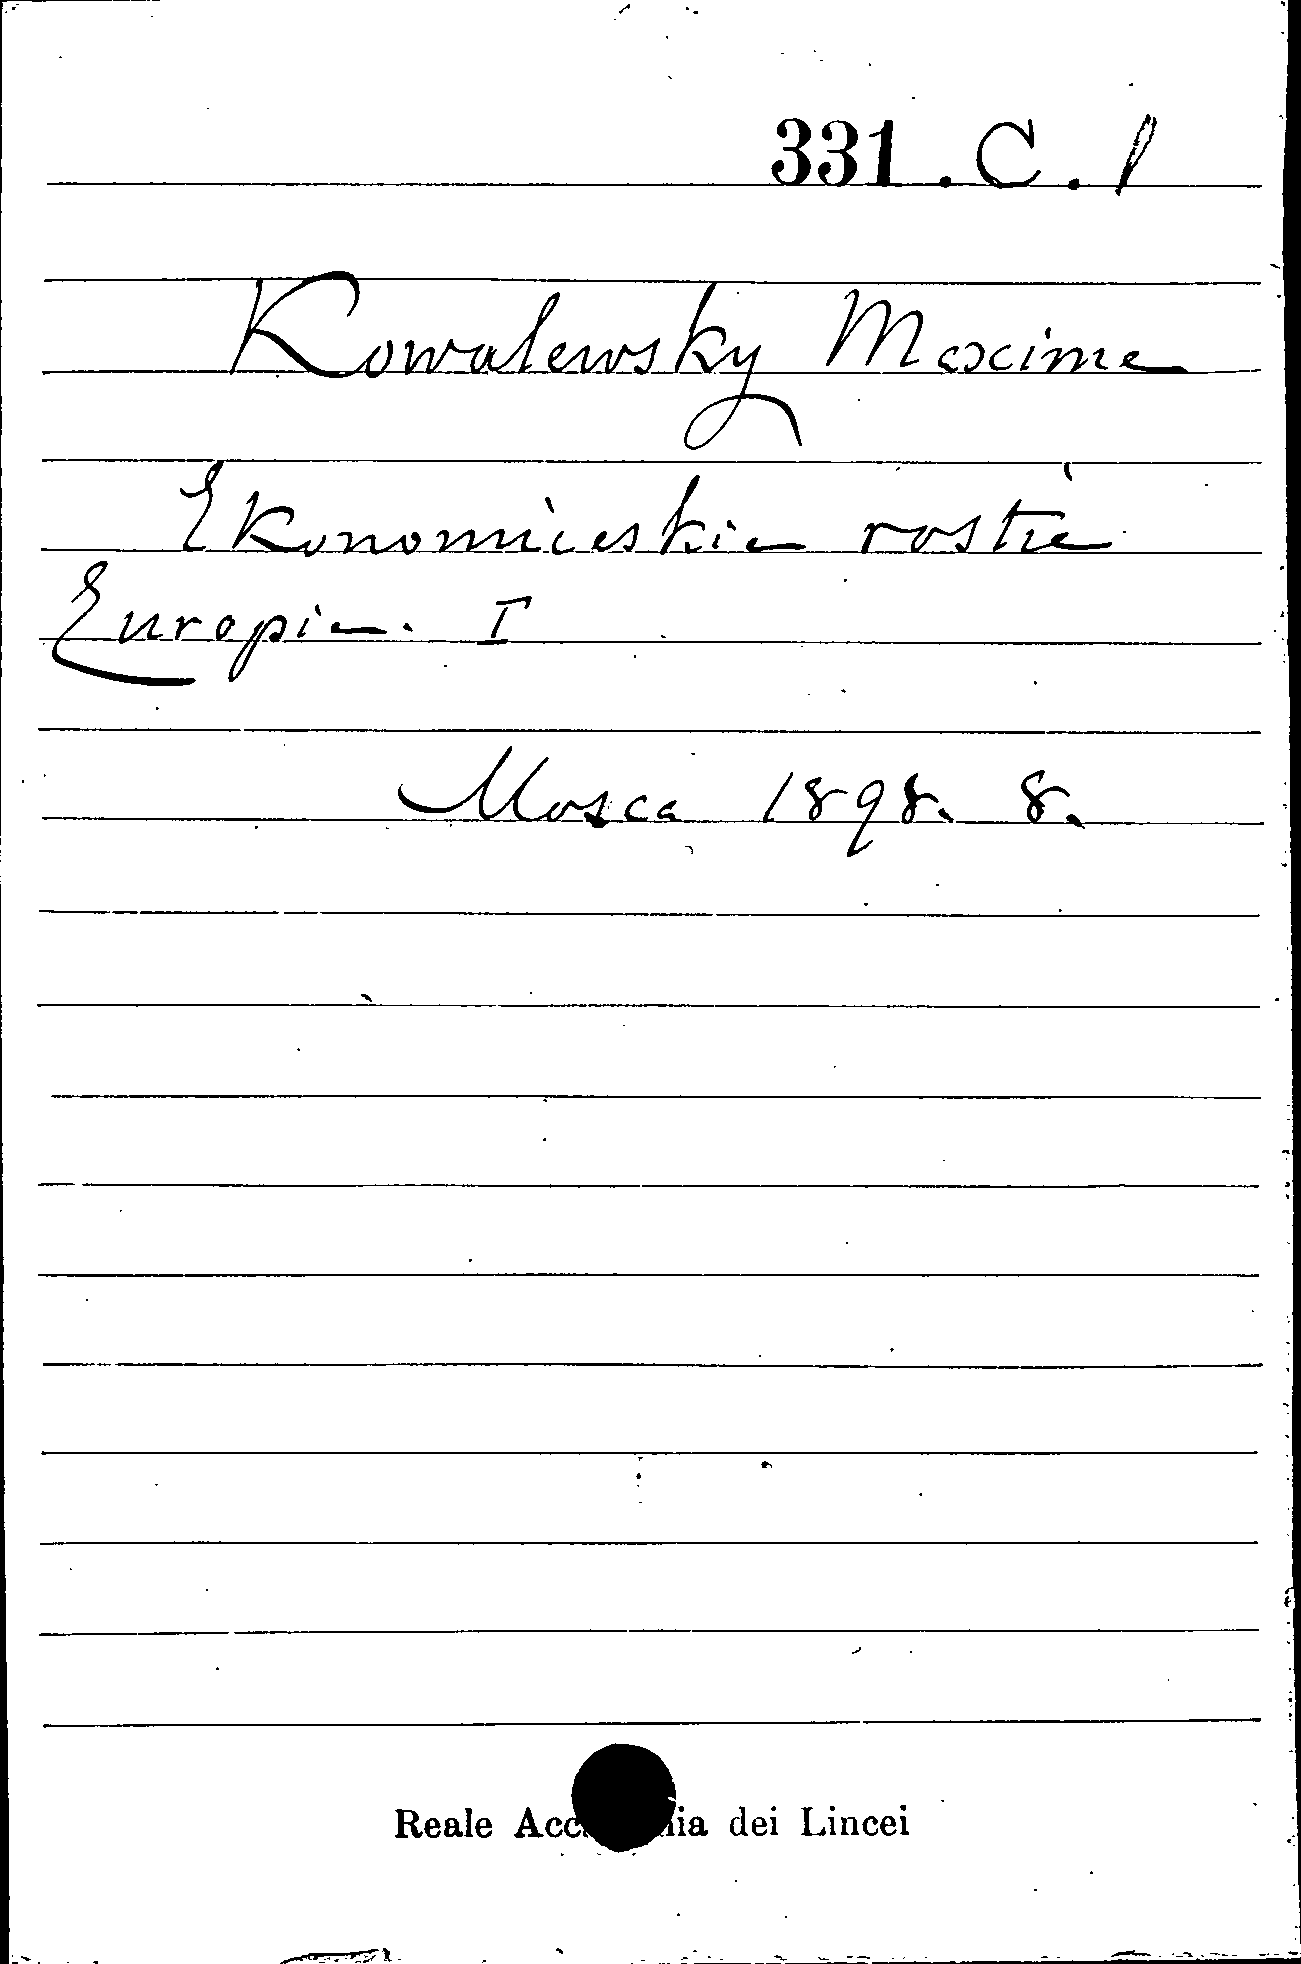 331. C. 1
Kowalewsky Maxime
Ekonomiceskie rostie
Europie. I
Mosca 1898. 8.
Reale dei Lincei